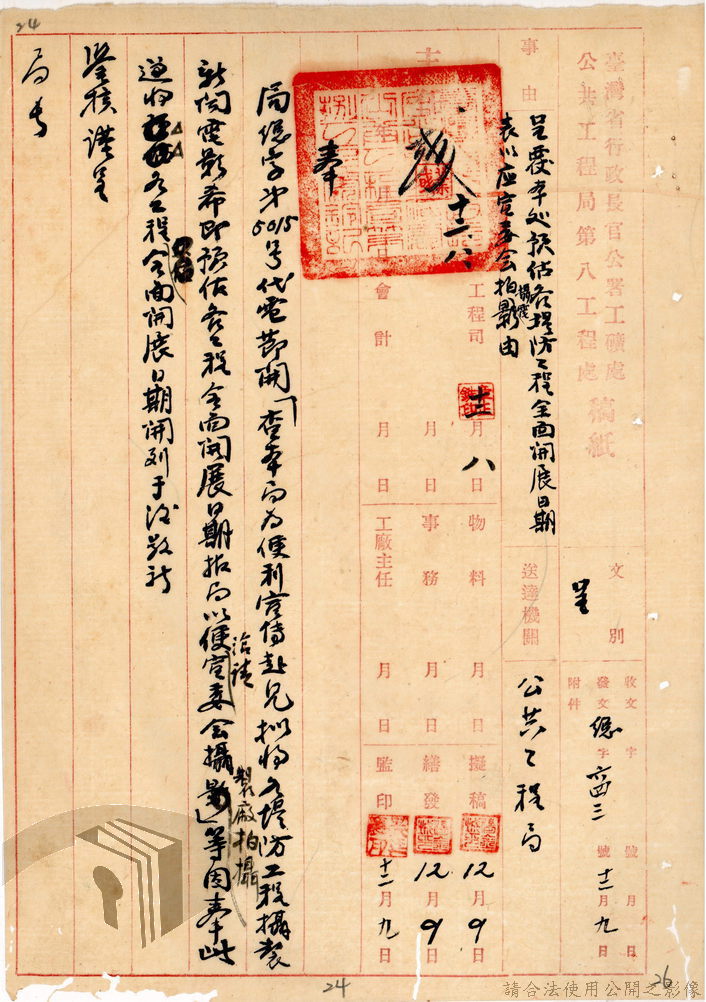 24
臺灣省行政長官公署工礦處
公共工程局第八工程處
稿紙
文別
呈
收文 字 號 月 日
發文 總字 號 十二月九日
附件
事由
呈覆本处預估各堤防工程全面開展日期
表以应宣委会拍攝電影由
送達機關
公共工程局
工程司 十二月八日
物料 月 日
擬稿 12月9日
月 日
事務 月 日
繕發 12月9日
會計 月 日
工廠主任 月 日
監印 十二月九日
十二、八
奉
局總字第5015号代電節開「查本局为便利宣傳起見擬將各堤防工程攝製
新闻電影希即預估各工程全面開展日期报局以便洽請宣委会製厰拍攝」等因奉此
遵將各工程全面開展日期開列于後敬祈
鑒核謹呈
局長
24
26
請合法使用公開之影像